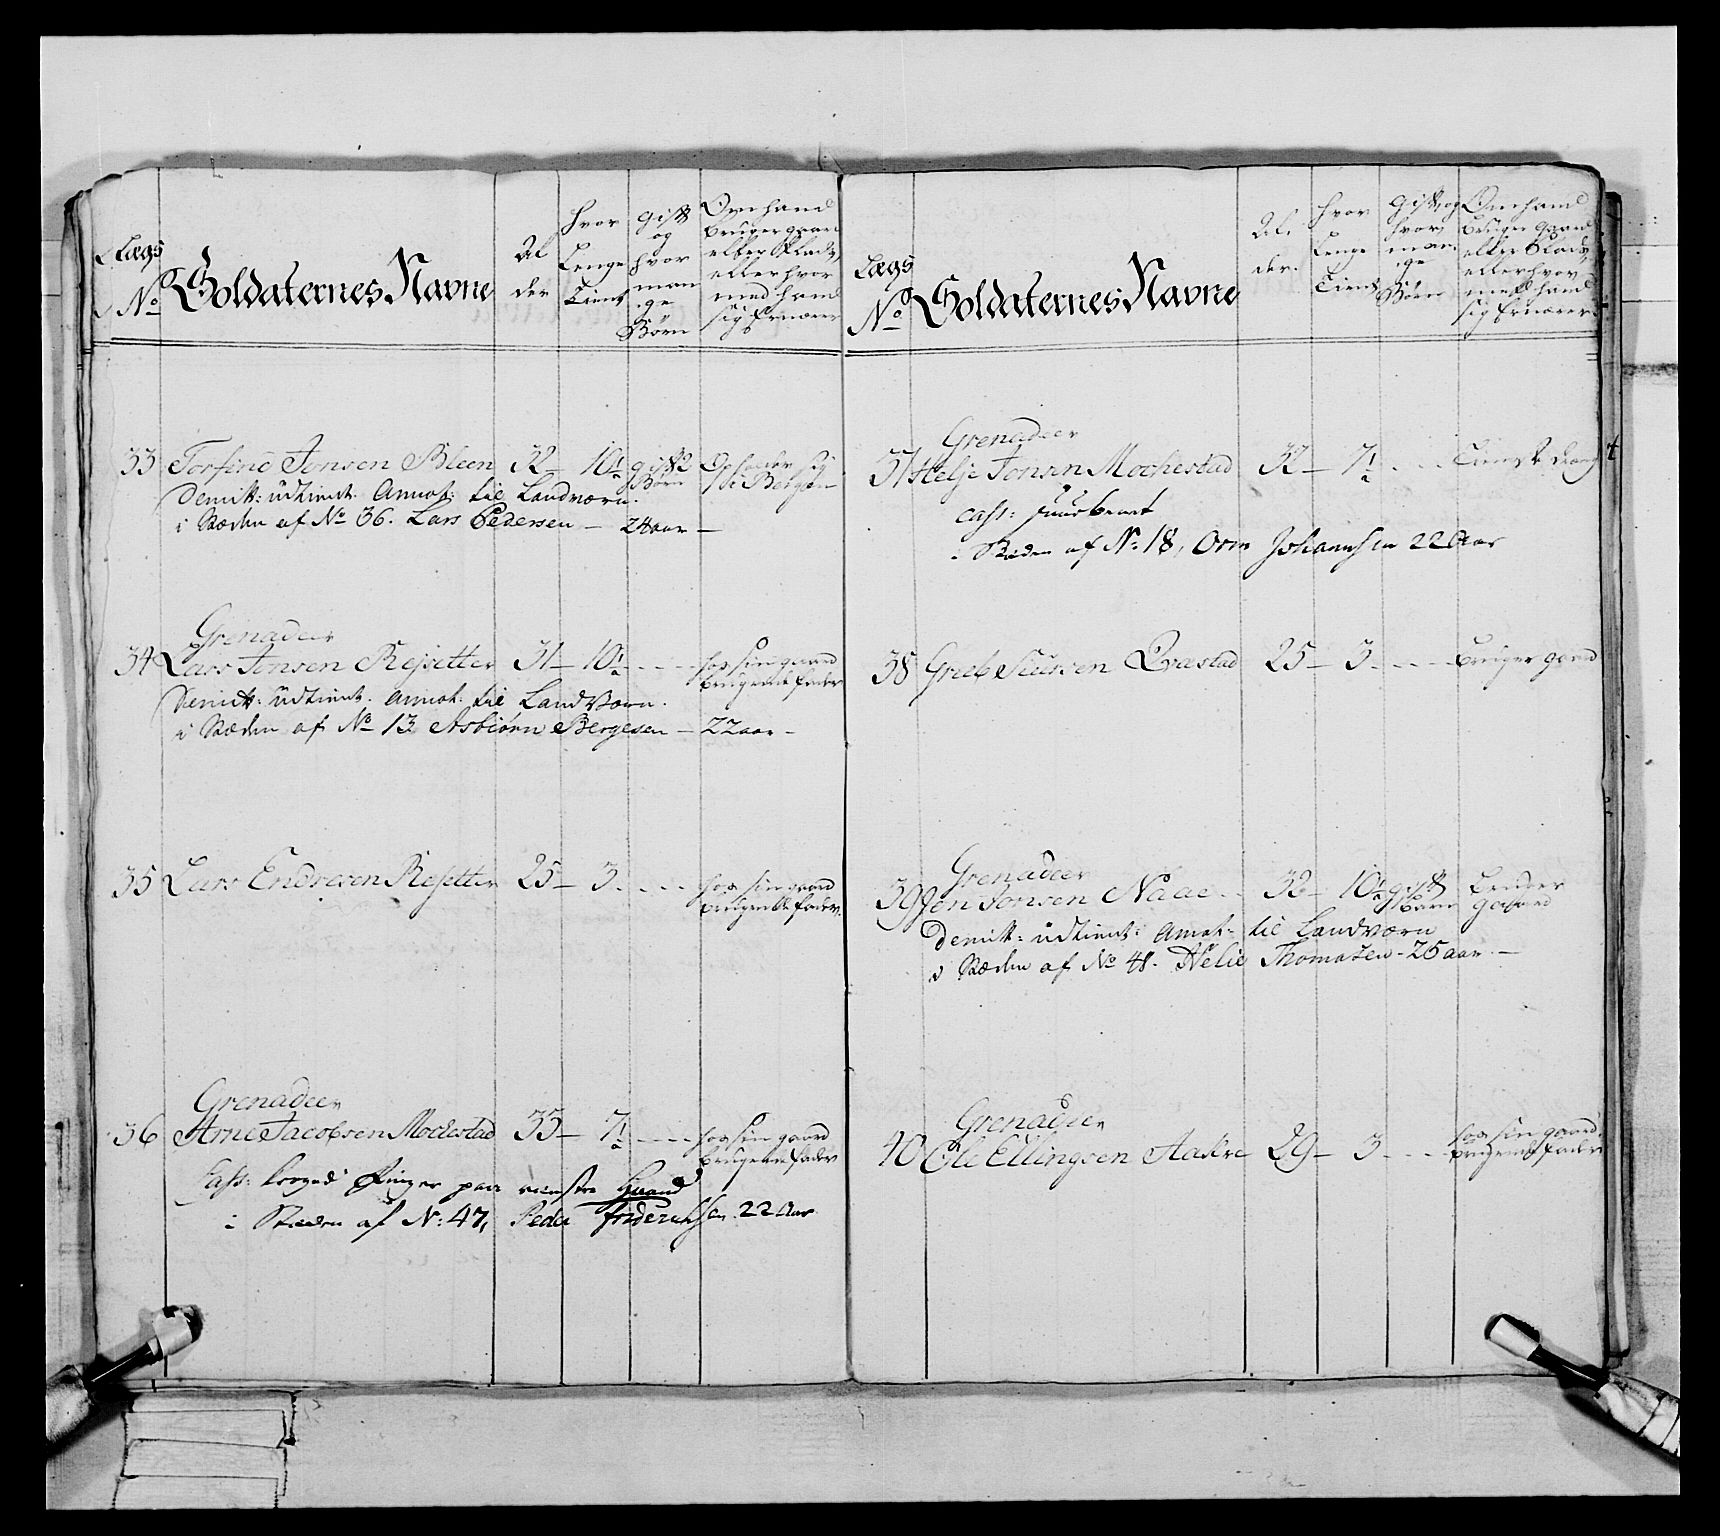 Lægs
No
Soldaternes Navne
Al
der
hvor
Lenge
Tient
gift
og
hvor
man
ige
Børn
Om hand
bruger gaard
eller Plads
eller hvor
med hand
sig Ernærer
33 Torfind Jonsen Bleen 32 — 10 1/2 gift 2 Børn Opholder sig i Bergen
Demitt: udtient. Annot: til Landværn.
i Stæden af No 36. Lars Pedersen — 24 aar —
Grenadeer
34 Lars Jonsen Rejsetter 31 — 10 1/2 - - - - hos sin gaard
brugende fader
Demitt: udtient. Annot: til Landværn.
i Stæden af No 13 Asbiørn Bergesen — 22 aar —
35 Lars Endresen Rejsetter 25 — 3 - - - - hos sin gaard
brugende fader.
Grenadeer
36 Arne Jacobsen Mockestad 33 — 7 1/2 - - - - hos sin gaard
brugende fader
Cass: Kroged Finger paa venstre Haand
i Stæden af N: 47, Peder Friderichsen 22 Aar
Lægs
No
Soldaternes Navne
Al
der.
hvor
Lenge
Tient
Gift og
hvor
man
ige
Børn
Om hand
bruger gaard
eller Plads
eller hvor
med hand
sig Ernærer
Grenadeer
37 Helje Jonsen Mockestad 32 — 7 1/2 - - - Tieneste dreng
cass:
i Stæden af N: 18, Orm Johannsen 22 Aar
38 Greeb Siursen Qvæstad 25 — 3 - - - - bruger gaard
Grenadeer
39 Jon Jonsen Naae - - 32 — 10 1/2 gift 1 Barn bruger
gaard
Demitt: udtient: Annot: til Landværn
i Stæden af No 48. Helie Thomasen - 25 aar —
Grenadeer
40 Ole Ellingsen Aakre 29 — 3 - - - - hos sin gaard
brugende fader